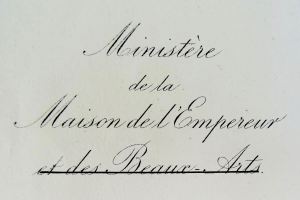 Ministère
de la
Maison de l'Empereur
et des Beaux-Arts.